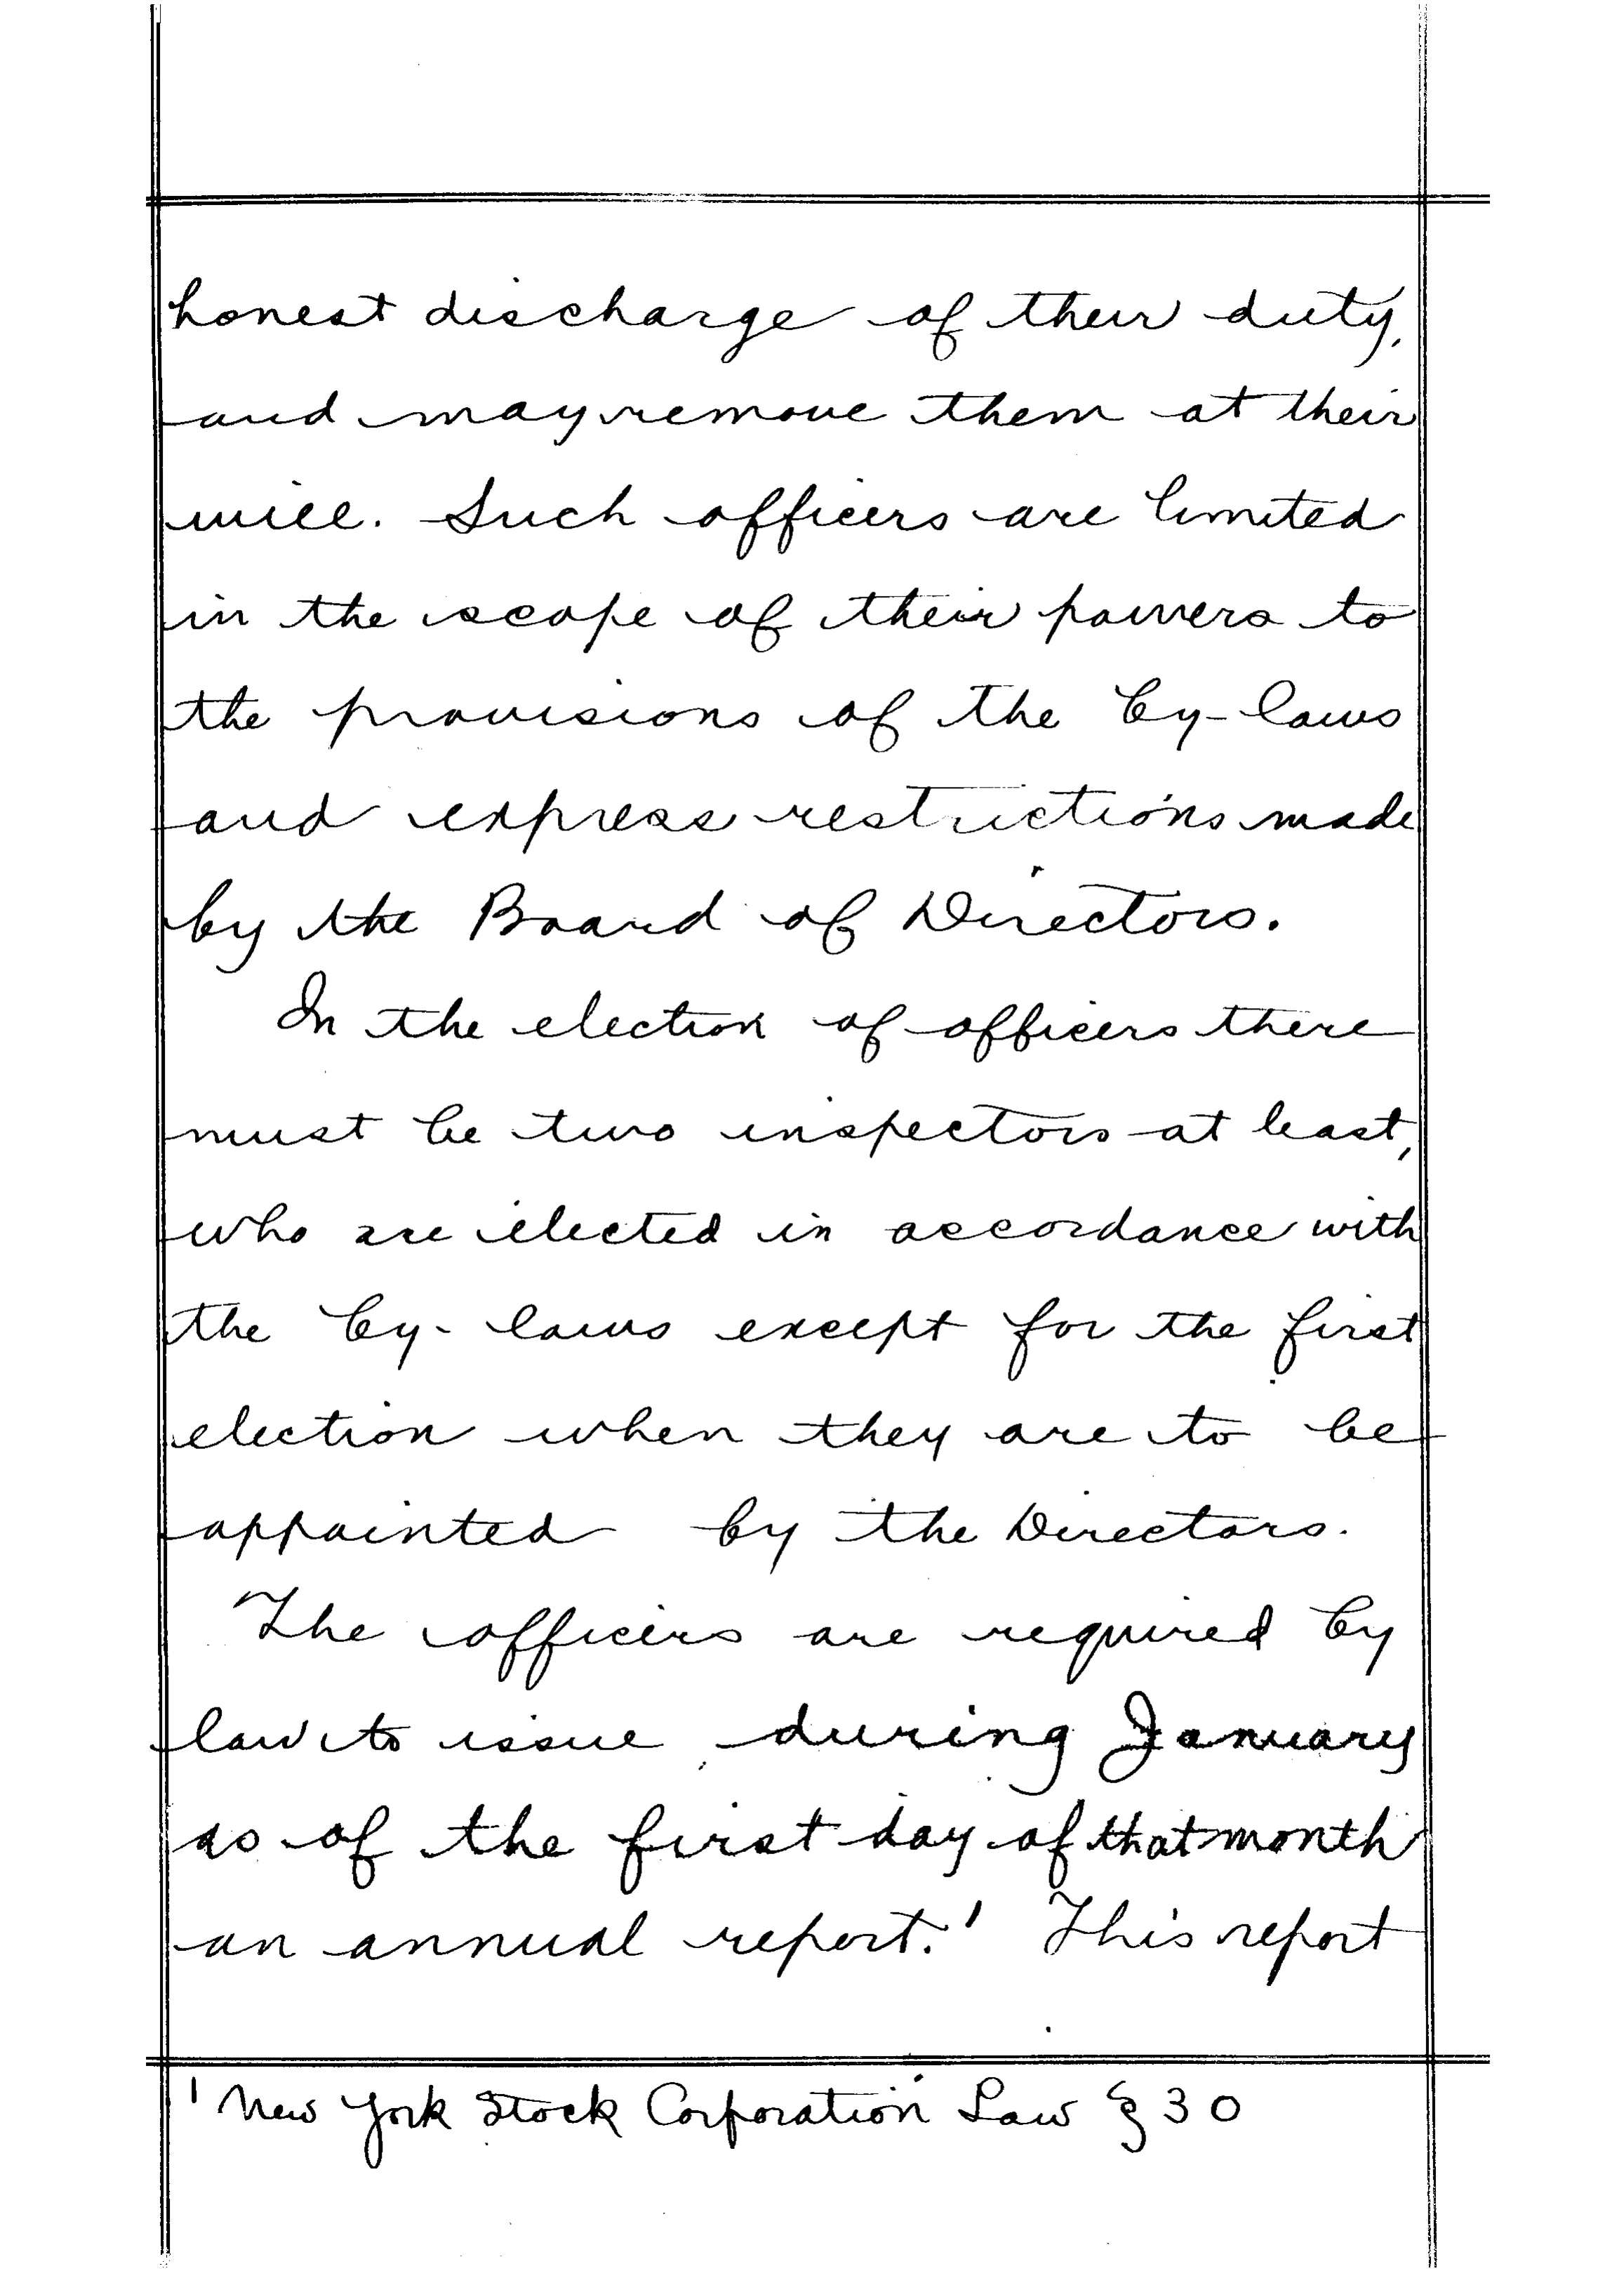 honest discharge of their duty,
and may remove them at their
will. Such officers are limited
in the scope of their powers to
the provisions of the by-laws
and express restrictions made
by the Board of Directors.
In the election of officers there
must be two inspectors at least,
who are elected in accordance with
the by-laws except for the first
election when they are to be
appointed by the Directors.
The officers are required by
law to issue during January
as of the first day of that month
an annual report.¹ This report
¹ New York Stock Corporation Law § 30